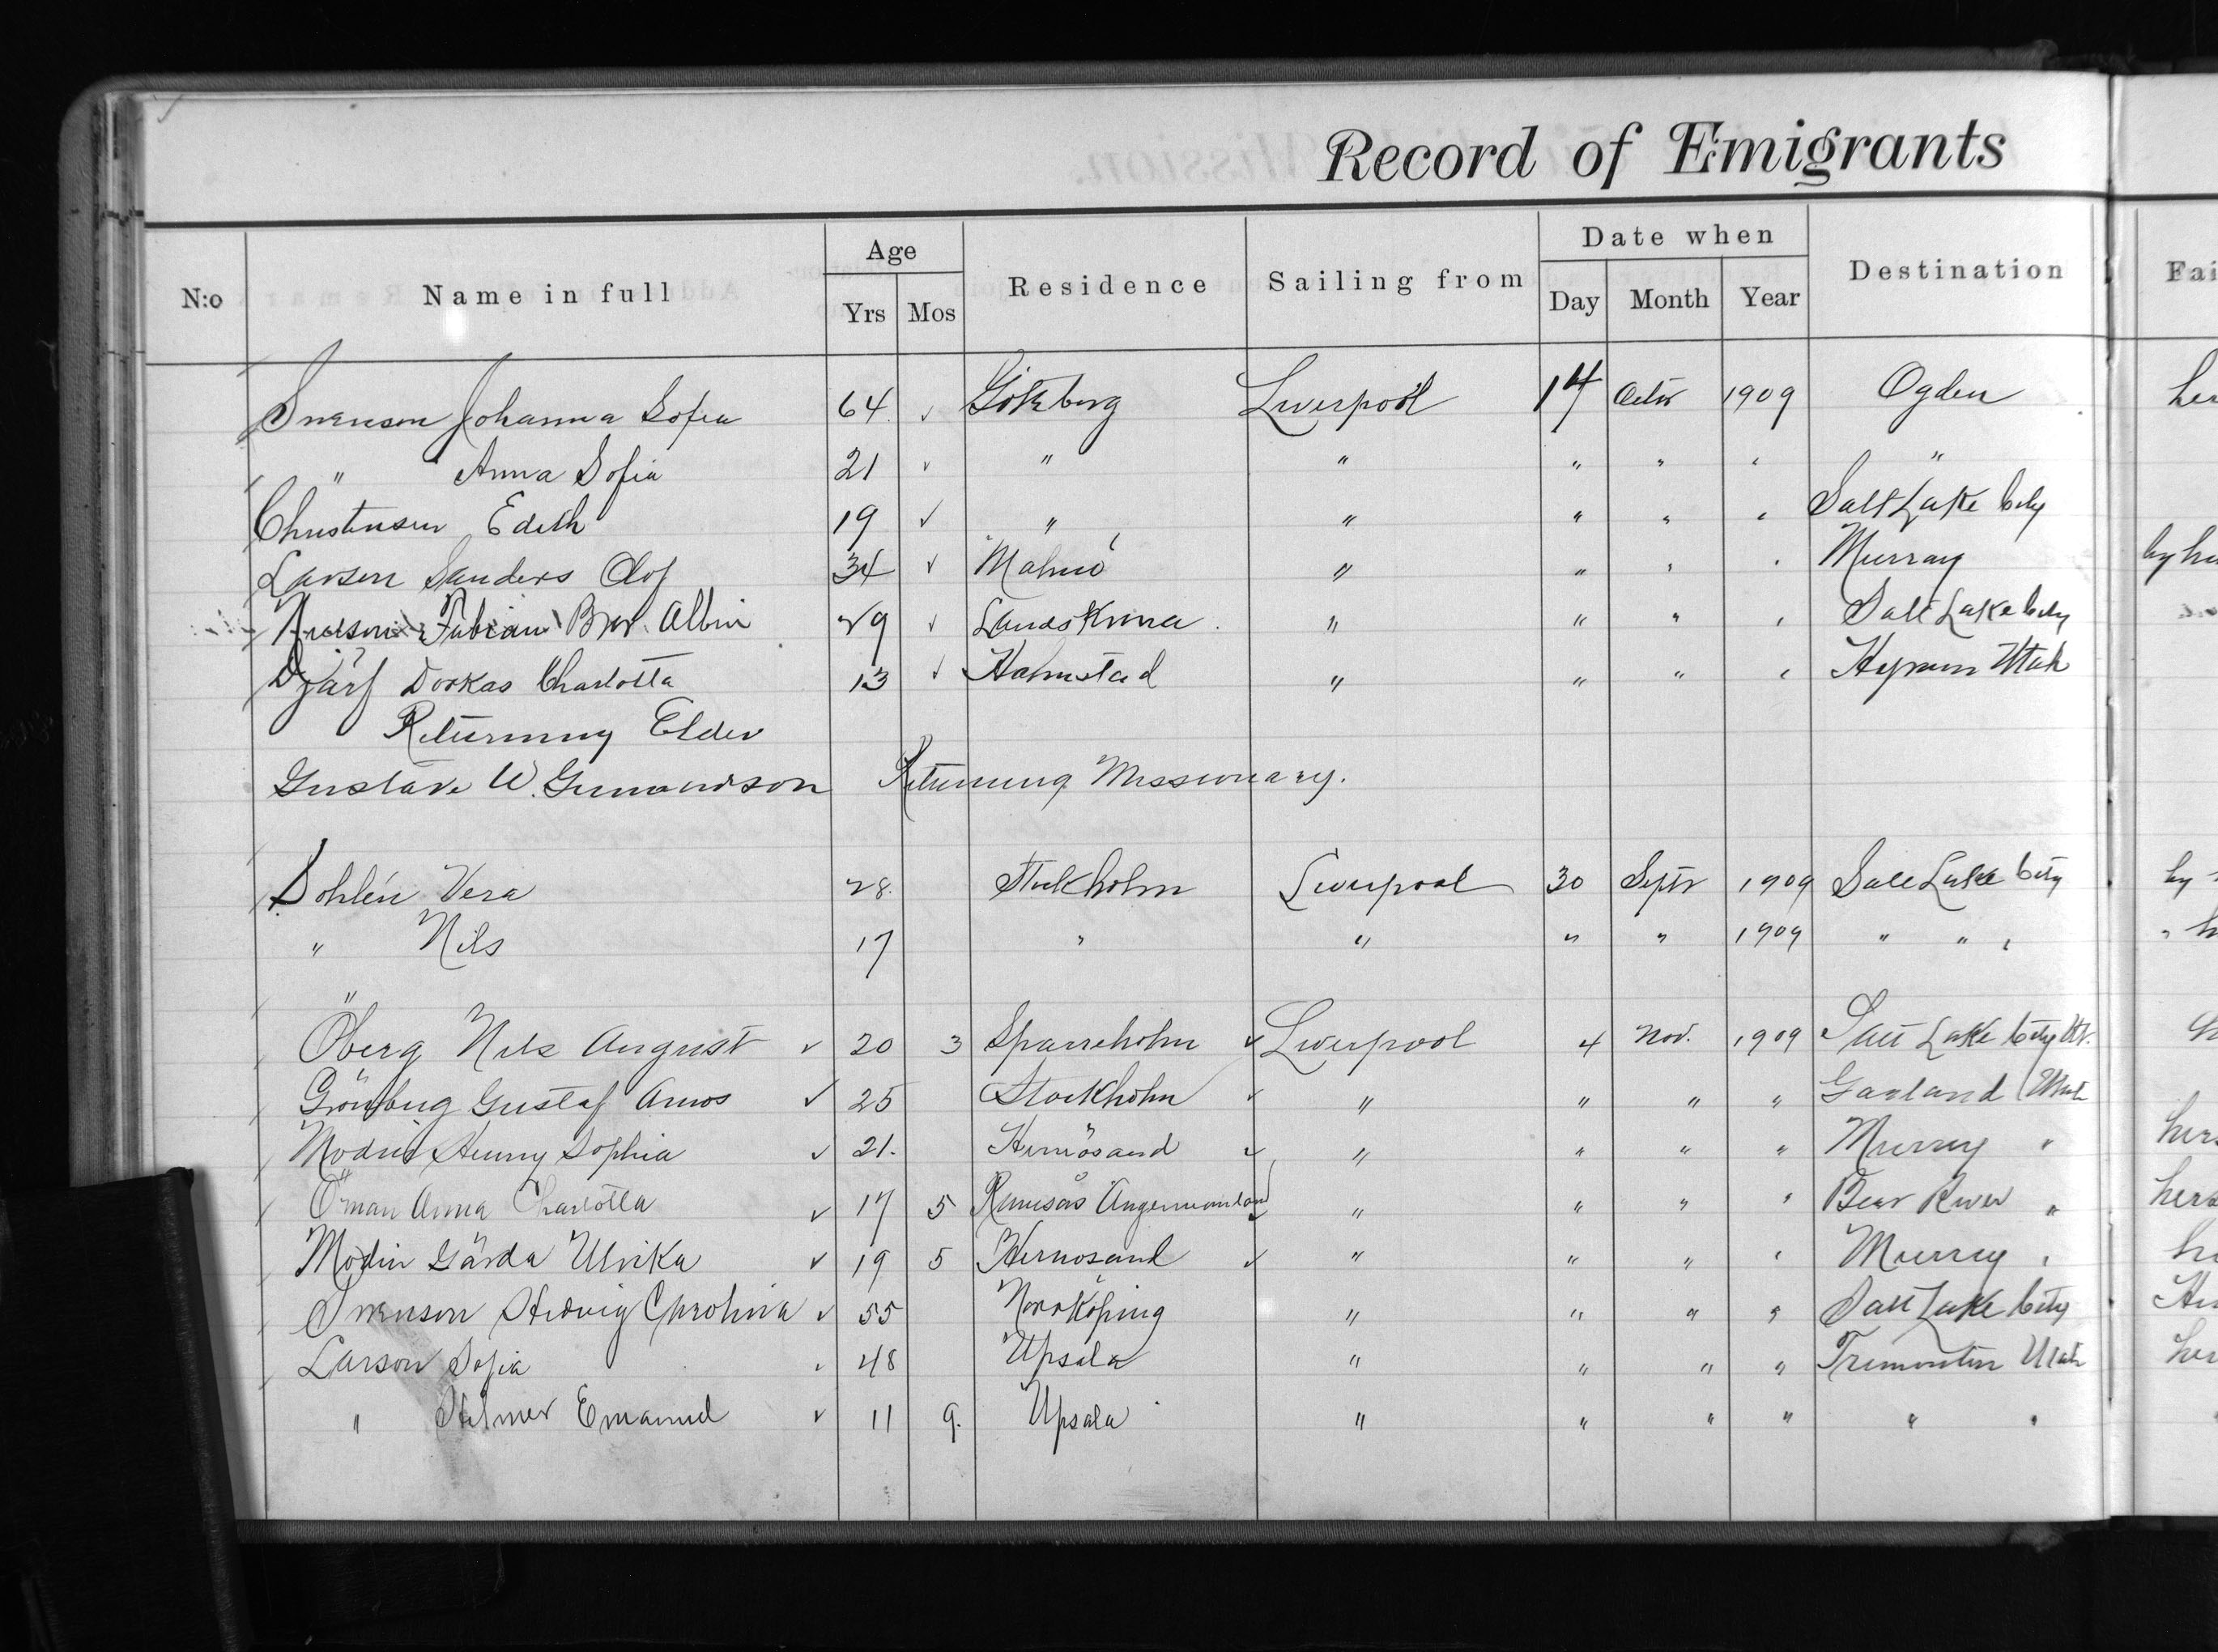 Record of Emigrants
N:o Name in full Age Yrs Mos Residence Sailing from Date when Day Month Year Destination Fai
Svenson Johanna Sofia 64 ✓ Göteborg Liverpool 14 Octbr 1909 Ogden her
" " Anna Sofia 21 ✓ " " " " " "
Christensen Edith 19 ✓ " " " " " Salt Lake City
Larsen Sanders Olof 34 ✓ Malmö " " " " Murray by hi
Fabian Bror Albin 29 ✓ Landskrona " " " " Salt Lake City
Djärf Dorkas Charlotta 13 ✓ Halmstad " " " " Hyrum Utah
Returning Elder
Gustave W. Gumandson Returning Missionary.
Dohlén Vera 28. Stockholm Liverpool 30 Septr 1909 Salt Lake City by
" Nils 17 " " " " 1909 " " "
Öberg Nils August ✓ 20 3 Sparreholm ✓ Liverpool 4 Nov. 1909 Salt Lake City Ut.
Grönberg Gustaf Amos ✓ 25 Stockholm ✓ " " " " Garland Utah
Modin Henny Sophia ✓ 21. Hernösand ✓ " " " " Murray " hers
Öman Anna Charlotta ✓ 17 5 Ångermanland ✓ " " " " Bear River " hers
Modin Gärda Ulrika ✓ 19 5 Hernosand ✓ " " " " Murray "
Svenson Hedvig Carolina ✓ 55 Norrköping " " " " Salt Lake City
Larson Sofia ✓ 48 Upsala " " " " Tremonton Utah her
" Hilmer Emanuel ✓ 11 9. Upsala " " " " " "